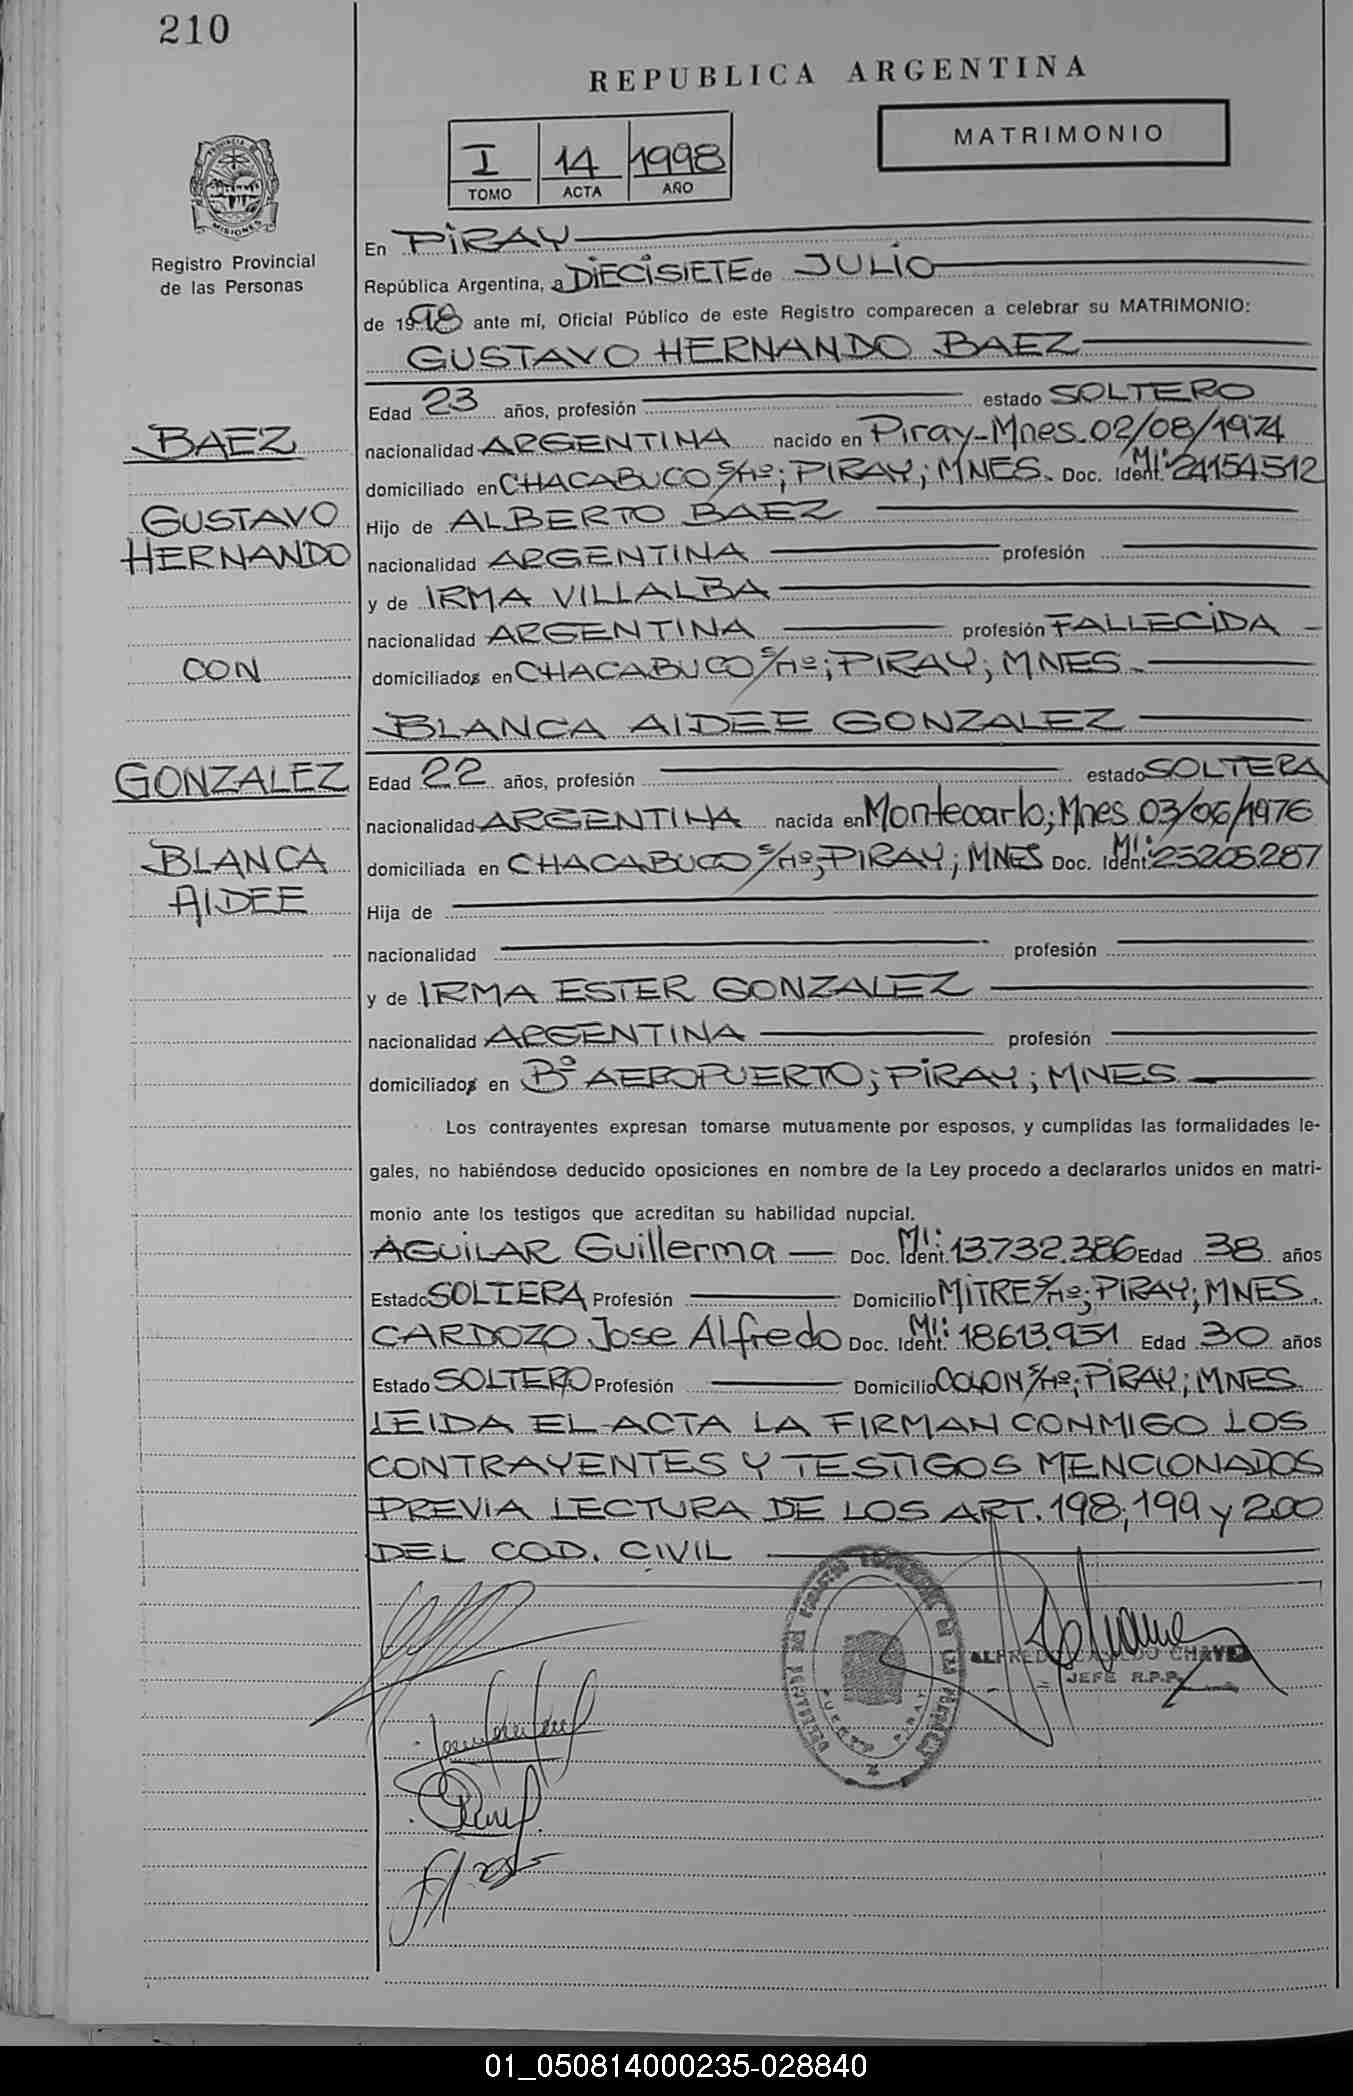 210
REPUBLICA ARGENTINA
I 14 1998
TOMO ACTA AÑO
MATRIMONIO
PROVINCIA DE
MISIONES
Registro Provincial
de las Personas
En PIRAY
República Argentina, a DIECISIETE de JULIO
de 1998 ante mí, Oficial Público de este Registro comparecen a celebrar su MATRIMONIO:
GUSTAVO HERNANDO BAEZ
Edad 23 años, profesión estado SOLTERO
BAEZ
nacionalidad ARGENTINA nacido en Piray-Mnes. 02/08/1974
domiciliado en CHACABUCO S/Nº; PIRAY; MNES. Doc. Ident. MI: 24154.512
GUSTAVO
Hijo de ALBERTO BAEZ
HERNANDO
nacionalidad ARGENTINA profesión
y de IRMA VILLALBA
nacionalidad ARGENTINA profesión FALLECIDA
CON
domiciliados en CHACABUCO S/Nº; PIRAY; MNES.
BLANCA AIDEE GONZALEZ
GONZALEZ
Edad 22 años, profesión estado SOLTERA
nacionalidad ARGENTINA nacida en Montecarlo; Mnes 03/06/1976
BLANCA
domiciliada en CHACABUCO S/Nº; PIRAY; MNES Doc. Ident. MI: 25205.287
AIDEE
Hija de
nacionalidad profesión
y de IRMA ESTER GONZALEZ
nacionalidad ARGENTINA profesión
domiciliados en Bº AEROPUERTO; PIRAY; MNES.
Los contrayentes expresan tomarse mutuamente por esposos, y cumplidas las formalidades le-
gales, no habiéndose deducido oposiciones en nombre de la Ley procedo a declararlos unidos en matri-
monio ante los testigos que acreditan su habilidad nupcial.
AGUILAR Guillerma Doc. Ident. MI: 13.732.386 Edad 38 años
Estado SOLTERA Profesión Domicilio MITRE S/Nº; PIRAY; MNES.
CARDOZO Jose Alfredo Doc. Ident. MI: 18613.951 Edad 30 años
Estado SOLTERO Profesión Domicilio COLON S/Nº; PIRAY; MNES.
LEIDA EL ACTA LA FIRMAN CONMIGO LOS
CONTRAYENTES Y TESTIGOS MENCIONADOS
PREVIA LECTURA DE LOS ART. 198; 199 y 200
DEL COD. CIVIL
PUERTO PIRAY
ALFREDO CHAVEZ
JEFE R.P.P.
01_050814000235-028840